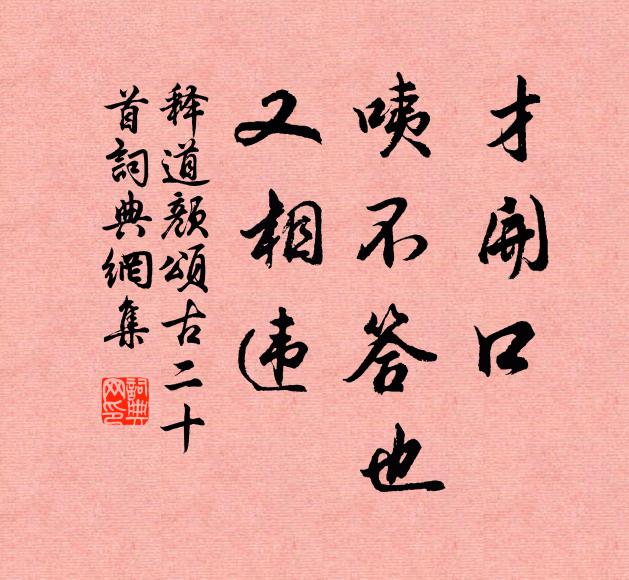 才開口
咦不答也
又相违
释道颜頌古二十
首詞典網集
詞典网印